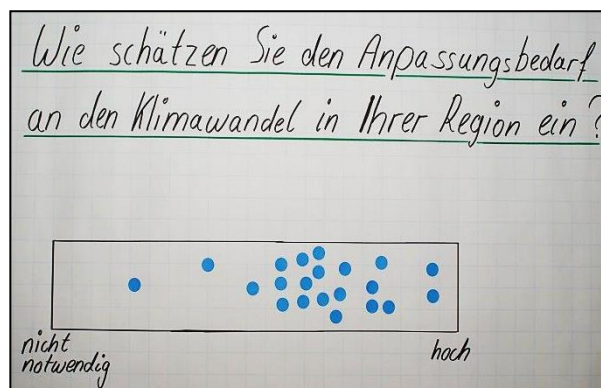 Wie schätzen Sie den Anpassungsbedarf
an den Klimawandel in Ihrer Region ein?
nicht
notwendig
hoch